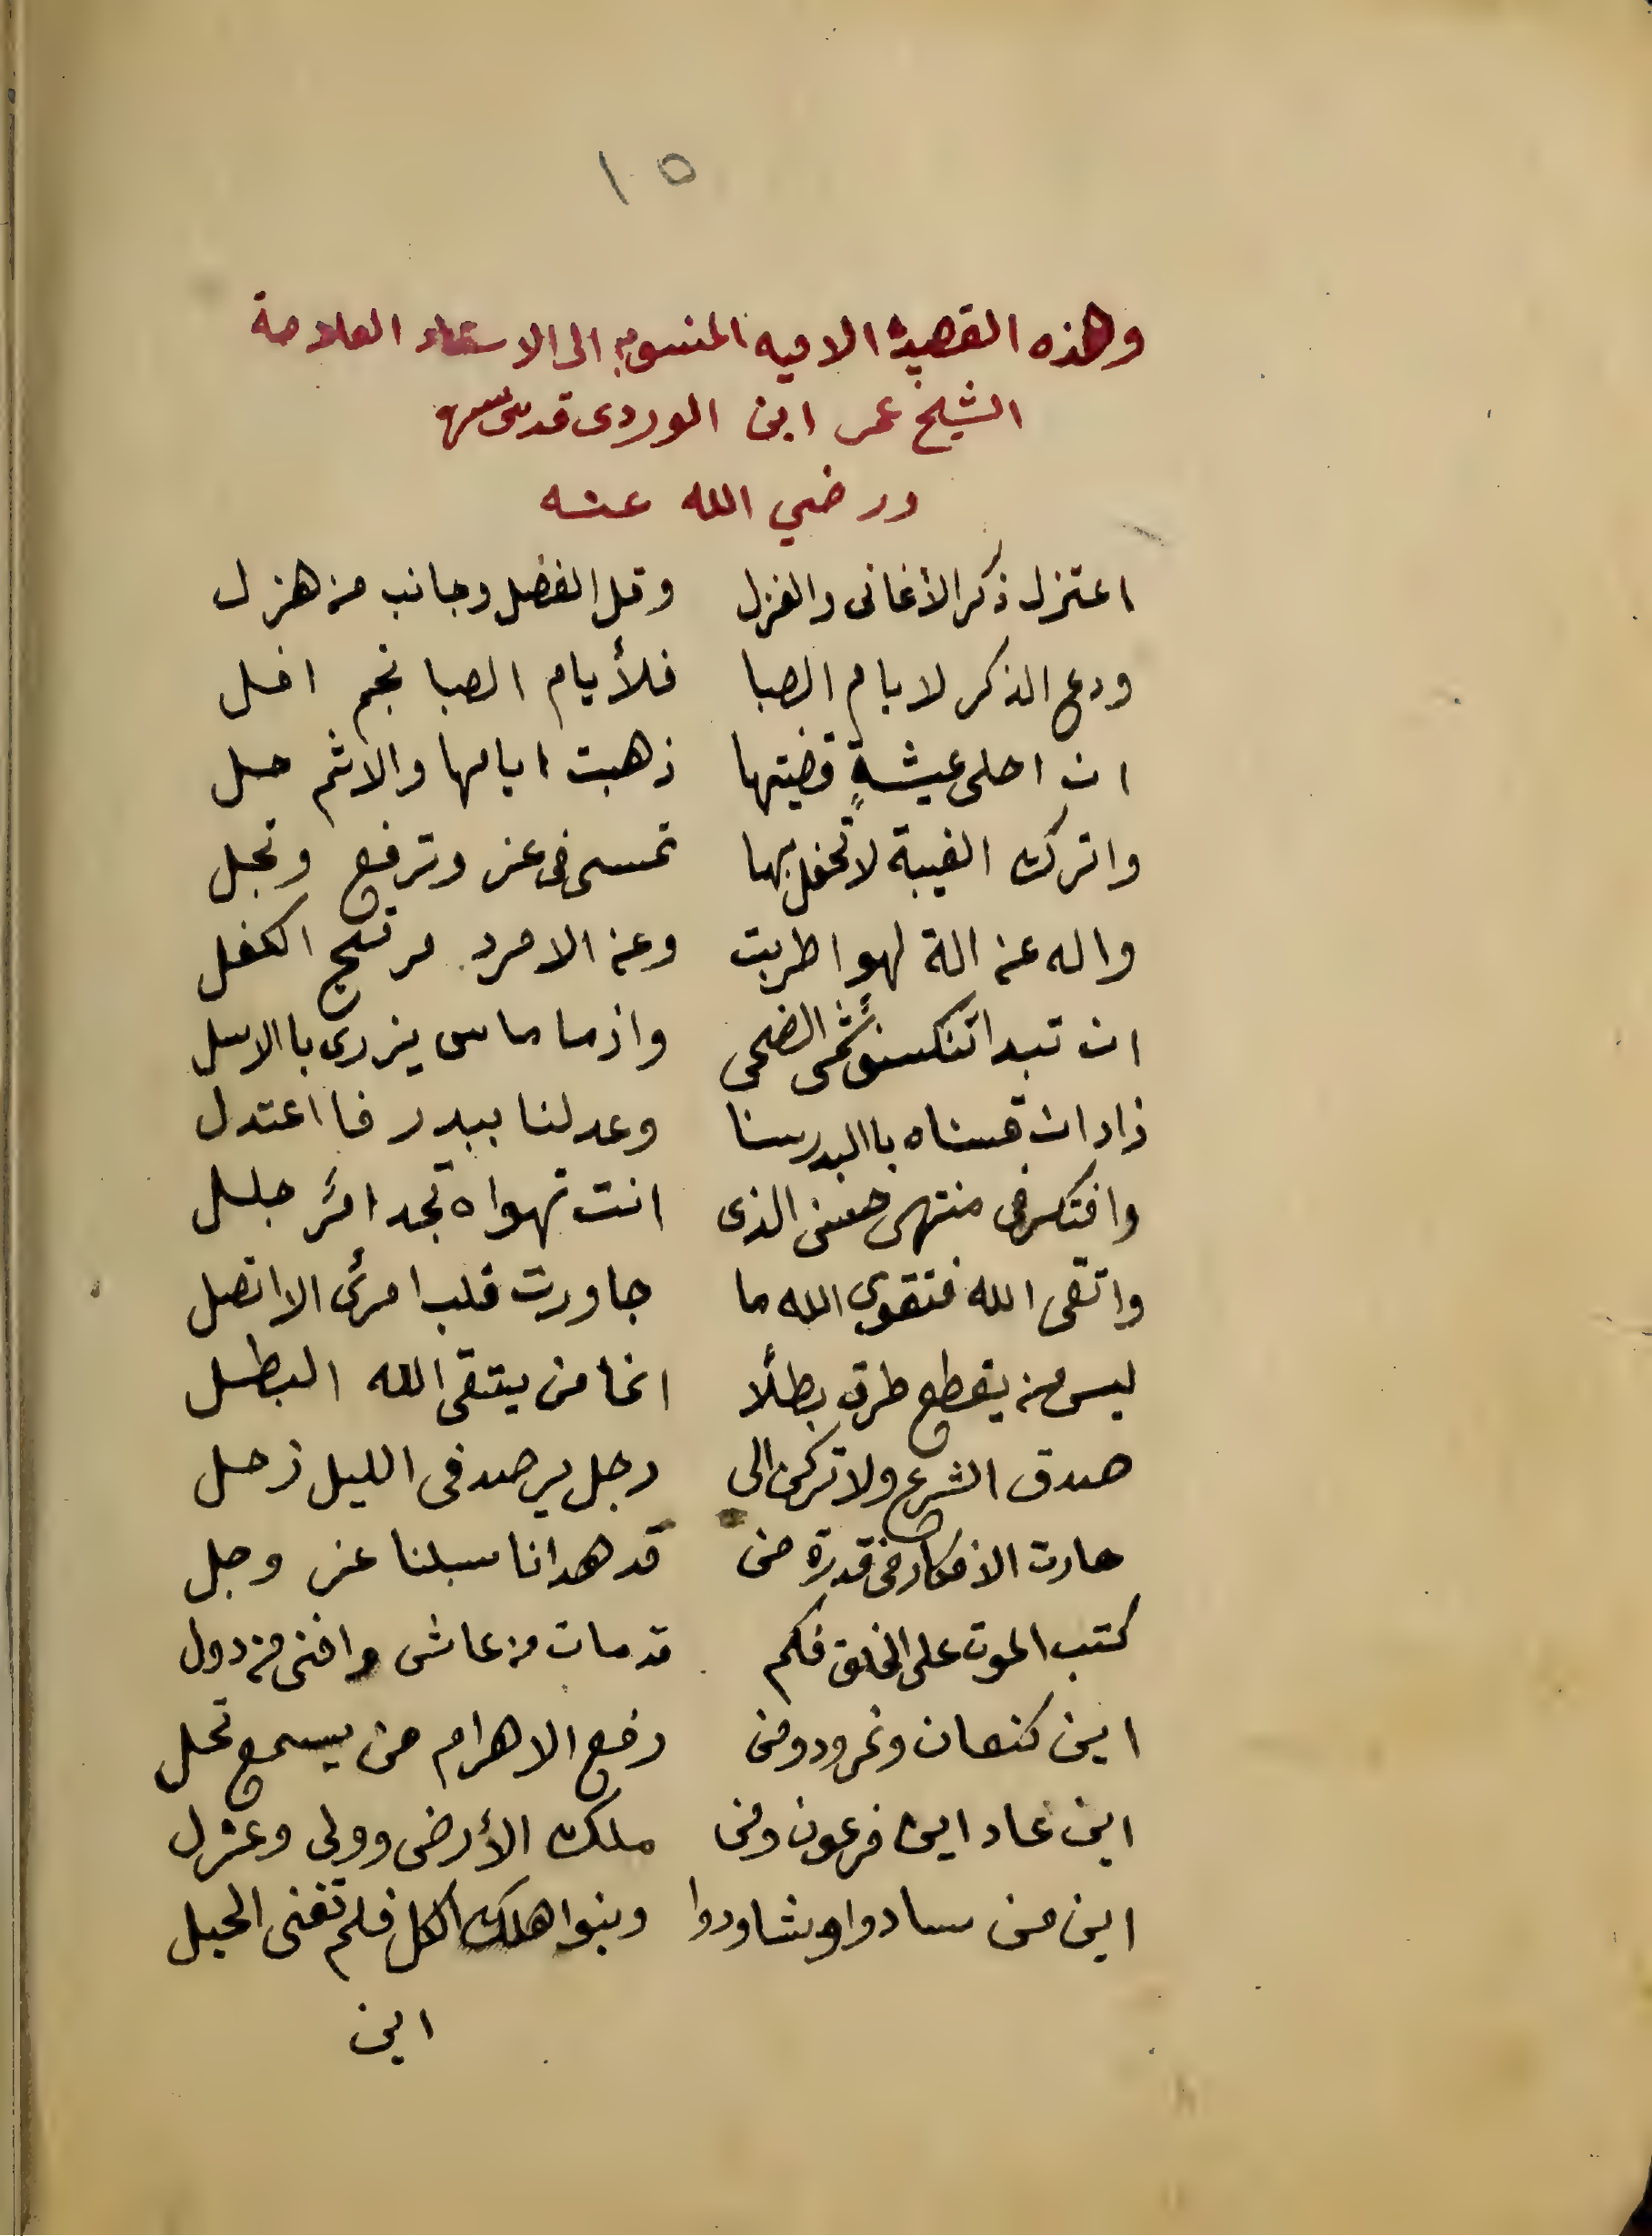 ١٥
وهذه القصيدة الاميه المنسوبه الى الاستاد العلامة
الشيخ عمر ابن الوردى قدس سره
ورضي الله عنه
اعتزل ذكر الأغانى والغزل وقل الفضل وجانب من هزل
ودع الذكر لايام الصبا فلأيام الصبا نجم افل
ان احلى عيشةٍ قضيتها ذهبت ايامها والاثم حل
واترك الغيبة لا تحفل بها تمسى فى عز وترفع وتجل
واله عن الة لهوٍ اطربت وعن الامرد مرتج الكفل
ان تبدا تنكسف شمس الضحى واذ ما ماس يزرى باالاسل
زاد ان قسناه باالبدر سنا وعدلنا ببدر فا اعتدل
وافتكر فى منتهى حسن الذى انت تهواه تجد امر جلل
واتقى الله فتقوى الله ما جاورت قلب امرئ الا اتصل
ليس من يقطع طرق بطلًا انما من يتقى الله البطل
صدق الشرع ولا تركن الى رجل يرصد فى الليل زحل
حارت الافكار فى قدرة من قد هدانا سبلنا عز وجل
كتب الموت على الخلق فكم قد مات من عاش وافنى من دول
اين كنعان ونمرود ومن رفع الاهرام من يسمع تحل
اين عاد اين فرعون ومن ملك الأرض وولى وعزل
اين من سادوا وشادوا وبنوا هلك الكل فلم تغنى الحيل
اين